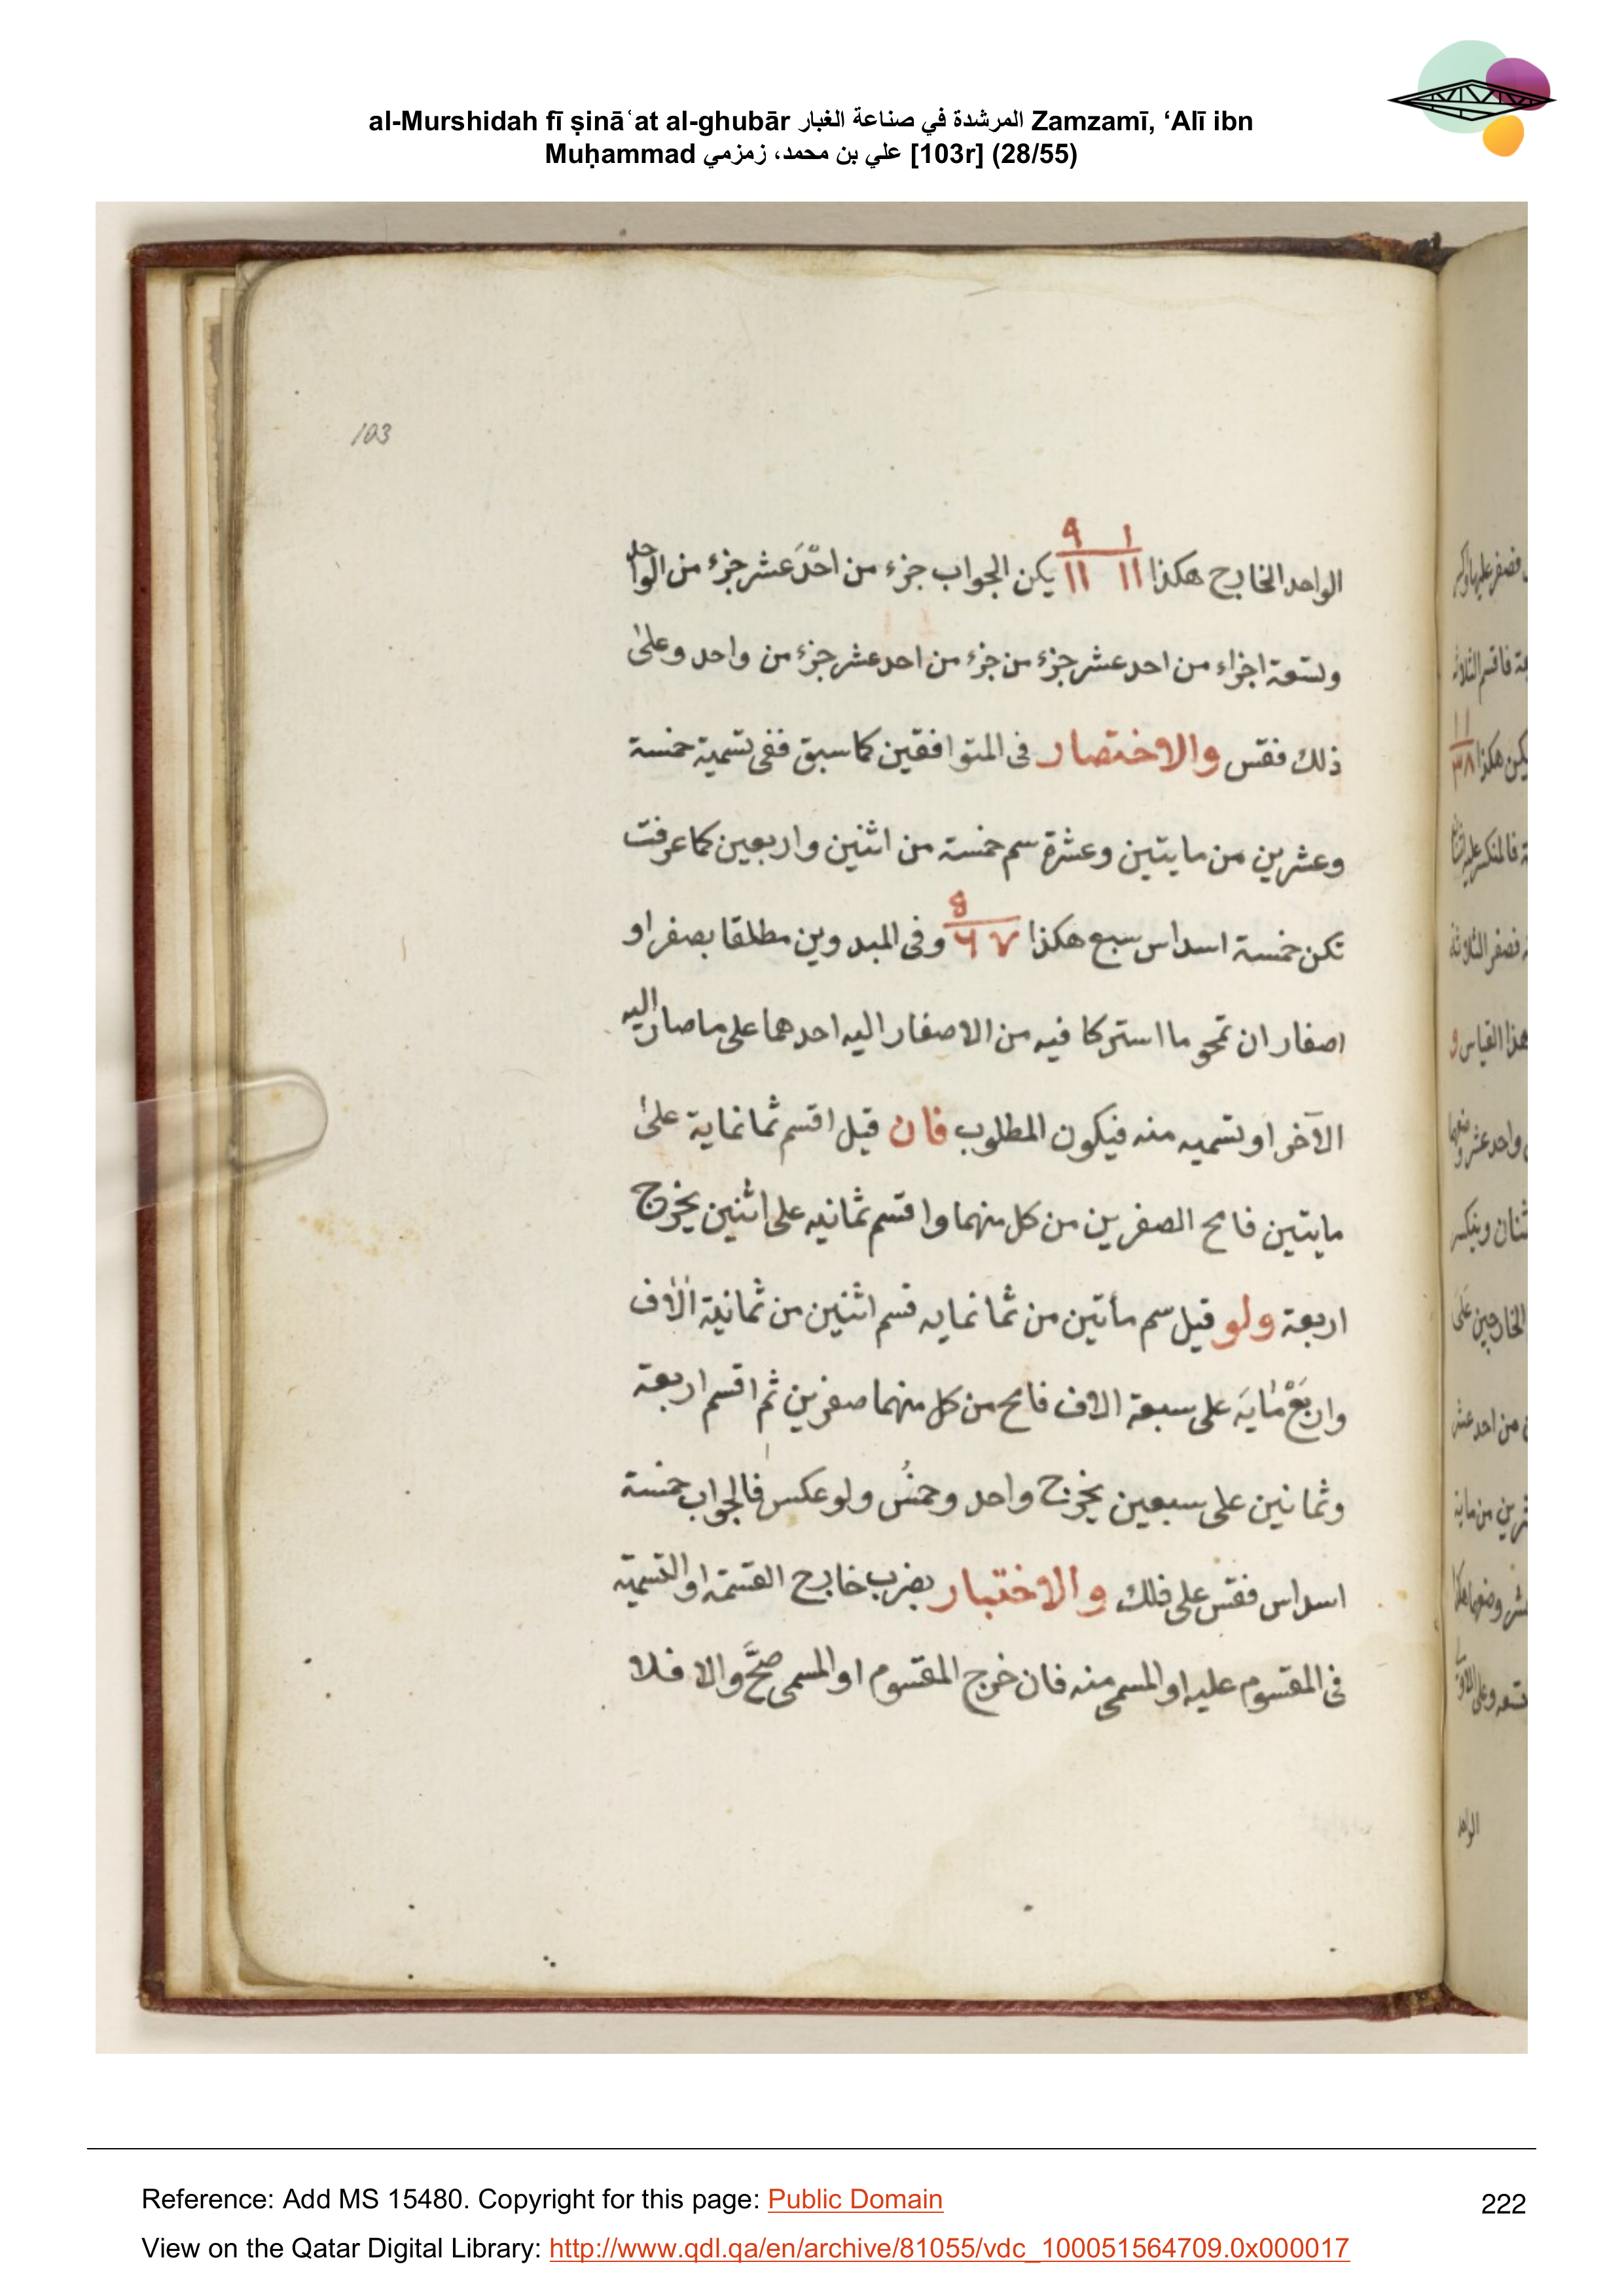 al-Murshidah fī ṣinā‘at al-ghubār المرشدة في صناعة الغبار Zamzamī, ‘Alī ibn
Muḥammad علي بن محمد، زمزمي [103r] (28/55)
103
١ ٩
الواحد الخارج هكذا ١١ ١١ يكن الجواب جزء من احدَ عشر جزء من الواحد
وتسعة اجزاء من احد عشر جزء من جزء من احد عشر جزء من واحد وعلى
ذلك فقس والاختصار فى المتوافقين كما سبق ففى تسمية خمسة
وعشرين من مايتين وعشرة سم خمسة من اثنين واربعين كما عرفت
تكن خمسة اسداس سبع هكذا ٧ ٦ وفى المبدوين مطلقا بصفر او
اصفار ان تمحو ما استركا فيه من الاصفار اليه احدهما على ما صار اليه
الآخر او تسميه منه فيكون المطلوب فان قيل اقسم ثمانماية على
مايتين فامح الصفرين من كل منهما واقسم ثمانيه على اثنين يخرج
اربعة ولو قيل سم مأتين من ثمانمايه قسم اثنين من ثمانية الاف
واربَعْمايَه على سبعة الاف فامح من كل منهما صفرين ثم اقسم اربعة
وثمانين على سبعين يخرج واحد وخمسُ ولو عكس فالجواب خمسة
اسداس فقس على فلك والاختبار بضرب خارج القسمة او التسمية
فى المقسوم عليه او المسمى منه فان خرج المقسوم او المسمى صحَّ والا فلا
الواحد
Reference: Add MS 15480. Copyright for this page: Public Domain
222
View on the Qatar Digital Library: http://www.qdl.qa/en/archive/81055/vdc_100051564709.0x000017